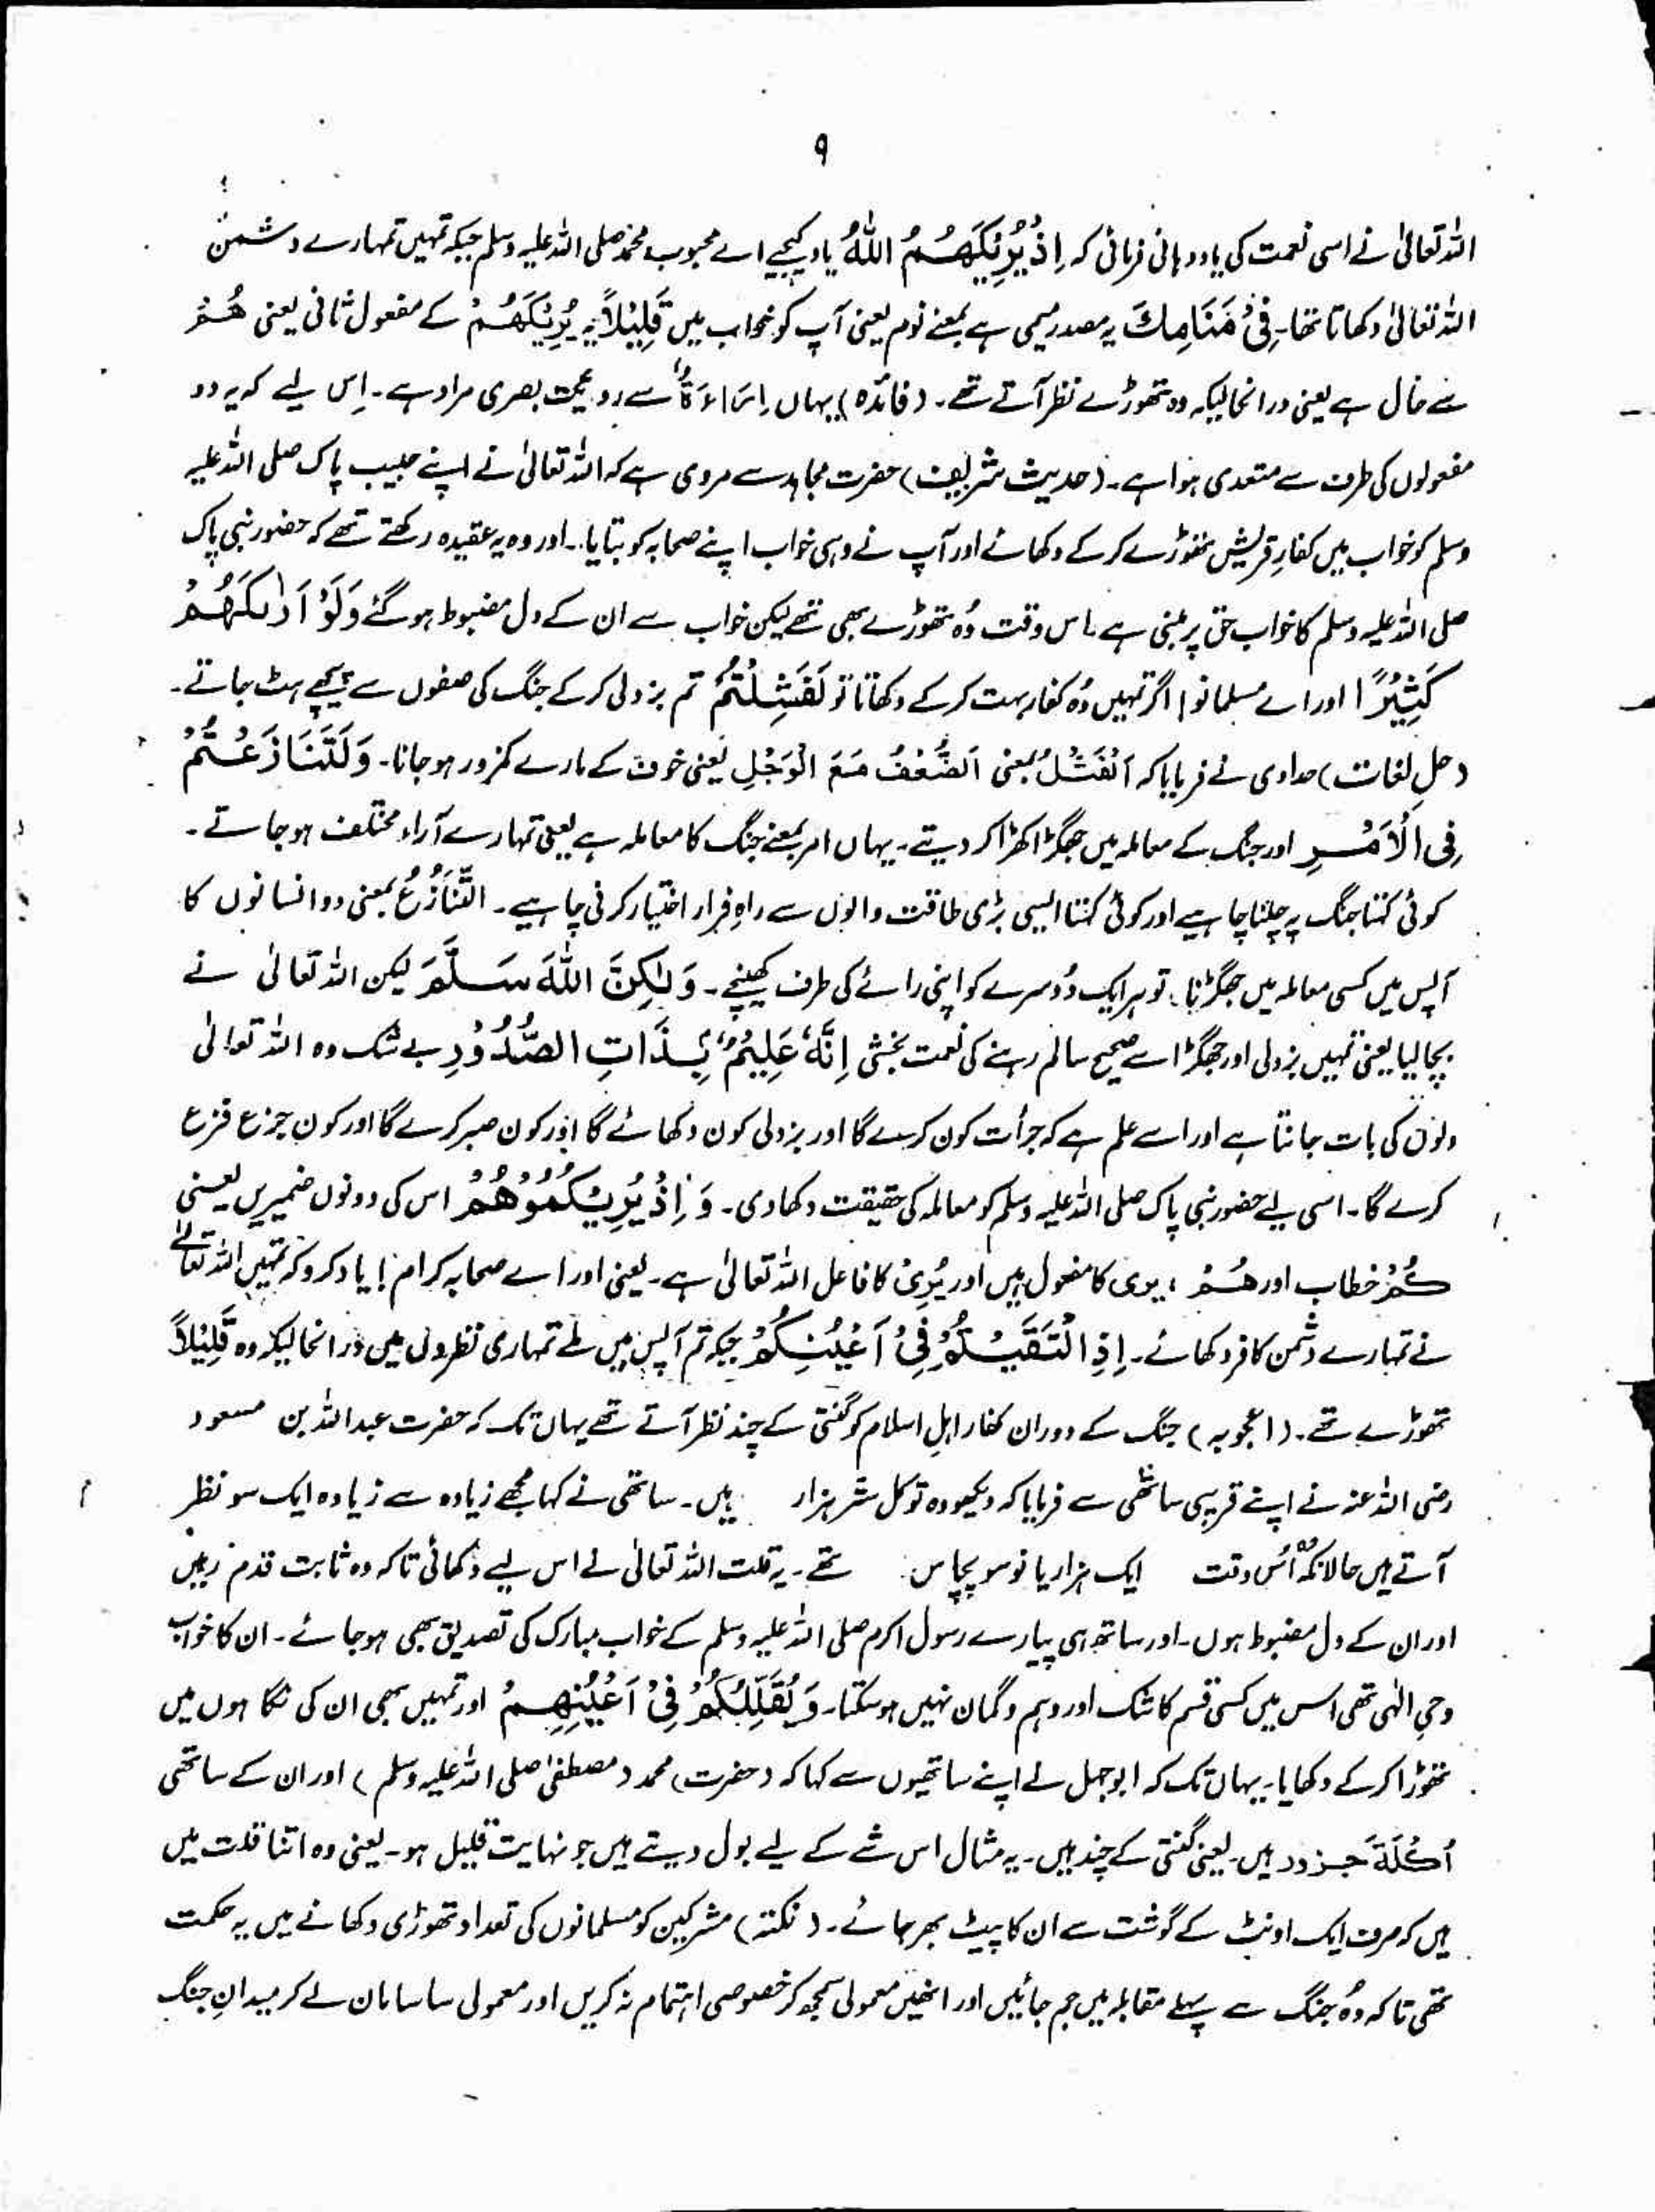 ۹
اللہ تعالیٰ نے اسی نعمت کی یاد دہانی فرمائی کہ اِذْ یُرِیْکَھُمُ اللّٰہُ یاد کیجیے اے محبوب محمد صلی اللہ علیہ وسلم جبکہ تمہیں تمہارے دشمن
اللہ تعالیٰ دکھاتا تھا۔ فِیْ مَنَامِكَ یہ مصدر میمی ہے بمعنے نوم یعنی آپ کو خواب میں قَلِیْلاً یہ یُرِیْکَھُمْ کے مفعول ثانی یعنی ھُمْ
سے حال ہے یعنی درانحالیکہ وہ تھوڑے نظر آتے تھے۔ (فائدہ) یہاں اِسَاءَۃٌ سے رویت بصری مراد ہے۔ اِس لیے کہ یہ دو
مفعولوں کی طرف سے متعدی ہوا ہے۔ (حدیث شریف) حضرت مجاہد سے مروی ہے کہ اللہ تعالیٰ نے اپنے حبیب پاک صلی اللہ علیہ
وسلم کو خواب میں کفارِ قریش تھوڑے کر کے دکھائے اور آپ نے وہی خواب اپنے صحابہ کو بتایا۔ اور وہ یہ عقیدہ رکھتے تھے کہ حضور نبی پاک
صلی اللہ علیہ وسلم کا خواب حق پر مبنی ہے ۔ اس وقت وُہ تھوڑے بھی تھے لیکن خواب سے ان کے دل مضبوط ہو گئے وَلَوْ اَرٰىکَھُمْ
کَثِیْرًا اور اے مسلمانو! اگر تمہیں وُہ کفار بہت کر کے دکھاتا تو لَفَشِلْتُمْ تم بزدلی کر کے جنگ کی صفوں سے پیچھے ہٹ جاتے۔
(حلِ لغات) حدادی نے فرمایا کہ اَلْفَشَلُ بمعنی اَلضُّعْفُ مَعَ الْوَجْلِ یعنی خوف کے مارے کمزور ہو جانا۔ وَلَتَنَازَعْتُمْ
فِی الْاَمْرِ اور جنگ کے معاملہ میں جھگڑا کھڑا کر دیتے۔ یہاں امر بمعنے جنگ کا معاملہ ہے یعنی تمہارے آراء مختلف ہو جاتے۔
کوئی کہتا جنگ پہ چلنا چاہیے اور کوئی کہتا ایسی بڑی طاقت والوں سے راہِ فرار اختیار کرنی چاہیے۔ التَّنَازُعُ بمعنی دو انسانوں کا
آپس میں کسی معاملہ میں جھگڑنا، تو ہر ایک دُوسرے کو اپنی رائے کی طرف کھینچے۔ وَلٰکِنَّ اللّٰہَ سَلَّمَ لیکن اللہ تعالیٰ نے
بچا لیا یعنی تمہیں بزدلی اور جھگڑا سے صحیح سالم رہنے کی نعمت بخشی اِنَّہٗ عَلِیْمٌ بِذَاتِ الصُّدُوْرِ بے شک وہ اللہ تعالیٰ
دلوں کی بات جانتا ہے اور اسے علم ہے کہ جرأت کون کرے گا اور بزدلی کون دکھائے گا اور کون صبر کرے گا اور کون جزع فزع
کرے گا۔ اسی لیے حضور نبی پاک صلی اللہ علیہ وسلم کو معاملہ کی حقیقت دکھا دی۔ وَ اِذْ یُرِیْکُمُوْھُمْ اس کی دونوں ضمیریں یعنی
کُمْ خطاب اور ھُمْ ، یری کا مفعول ہیں اور یُرِیْ کا فاعل اللہ تعالیٰ ہے۔ یعنی اور اے صحابہ کرام! یاد کرو کہ تمہیں اللہ تعالےٰ
نے تمہارے دشمن کافر دکھائے۔ اِذِ الْتَقَیْتُمْ فِیْ اَعْیُنِکُمْ جبکہ تم آپس میں ملے تمہاری نظروں میں درانحالیکہ وہ قَلِیْلاً
تھوڑے تھے۔ (اعجوبہ) جنگ کے دوران کفار اہلِ اسلام کو گنتی کے چند نظر آتے تھے یہاں تک کہ حضرت عبداللہ بن مسعود
رضی اللہ عنہ نے اپنے قریبی ساتھی سے فرمایا کہ دیکھو وہ تو کل ستر ہزار ہیں۔ ساتھی نے کہا مجھے زیادہ سے زیادہ ایک سو نظر
آتے ہیں حالانکہ اُس وقت ایک ہزار یا نو سو پچاس تھے۔ یہ قلت اللہ تعالیٰ نے اس لیے دکھائی تاکہ وہ ثابت قدم رہیں
اور ان کے دل مضبوط ہوں۔ اور ساتھ ہی پیارے رسول اکرم صلی اللہ علیہ وسلم کے خواب مبارک کی تصدیق بھی ہو جائے۔ ان کا خواب
وحیِ الٰہی تھی اس میں کسی قسم کا شک اور وہم و گمان نہیں ہو سکتا۔ وَیُقَلِّلُکُمْ فِیْ اَعْیُنِھِمْ اور تمہیں بھی ان کی نگاہوں میں
تھوڑا کر کے دکھایا۔ یہاں تک کہ ابوجہل نے اپنے ساتھیوں سے کہا کہ (حضرت) محمد (مصطفیٰ صلی اللہ علیہ وسلم) اور ان کے ساتھی
اُکُلَۃَ جزور ہیں۔ یعنی گنتی کے چند ہیں۔ یہ مثال اس شے کے لیے بول دیتے ہیں جو نہایت قلیل ہو۔ یعنی وہ اتنا قلت میں
ہیں کہ صرف ایک اونٹ کے گوشت سے ان کا پیٹ بھر جائے۔ (نکتہ) مشرکین کو مسلمانوں کی تعداد تھوڑی دکھانے میں یہ حکمت
تھی تاکہ وُہ جنگ سے پہلے مقابلہ میں جم جائیں اور انھیں معمولی سمجھ کر خصوصی اہتمام نہ کریں اور معمولی سا سامان لے کر میدانِ جنگ